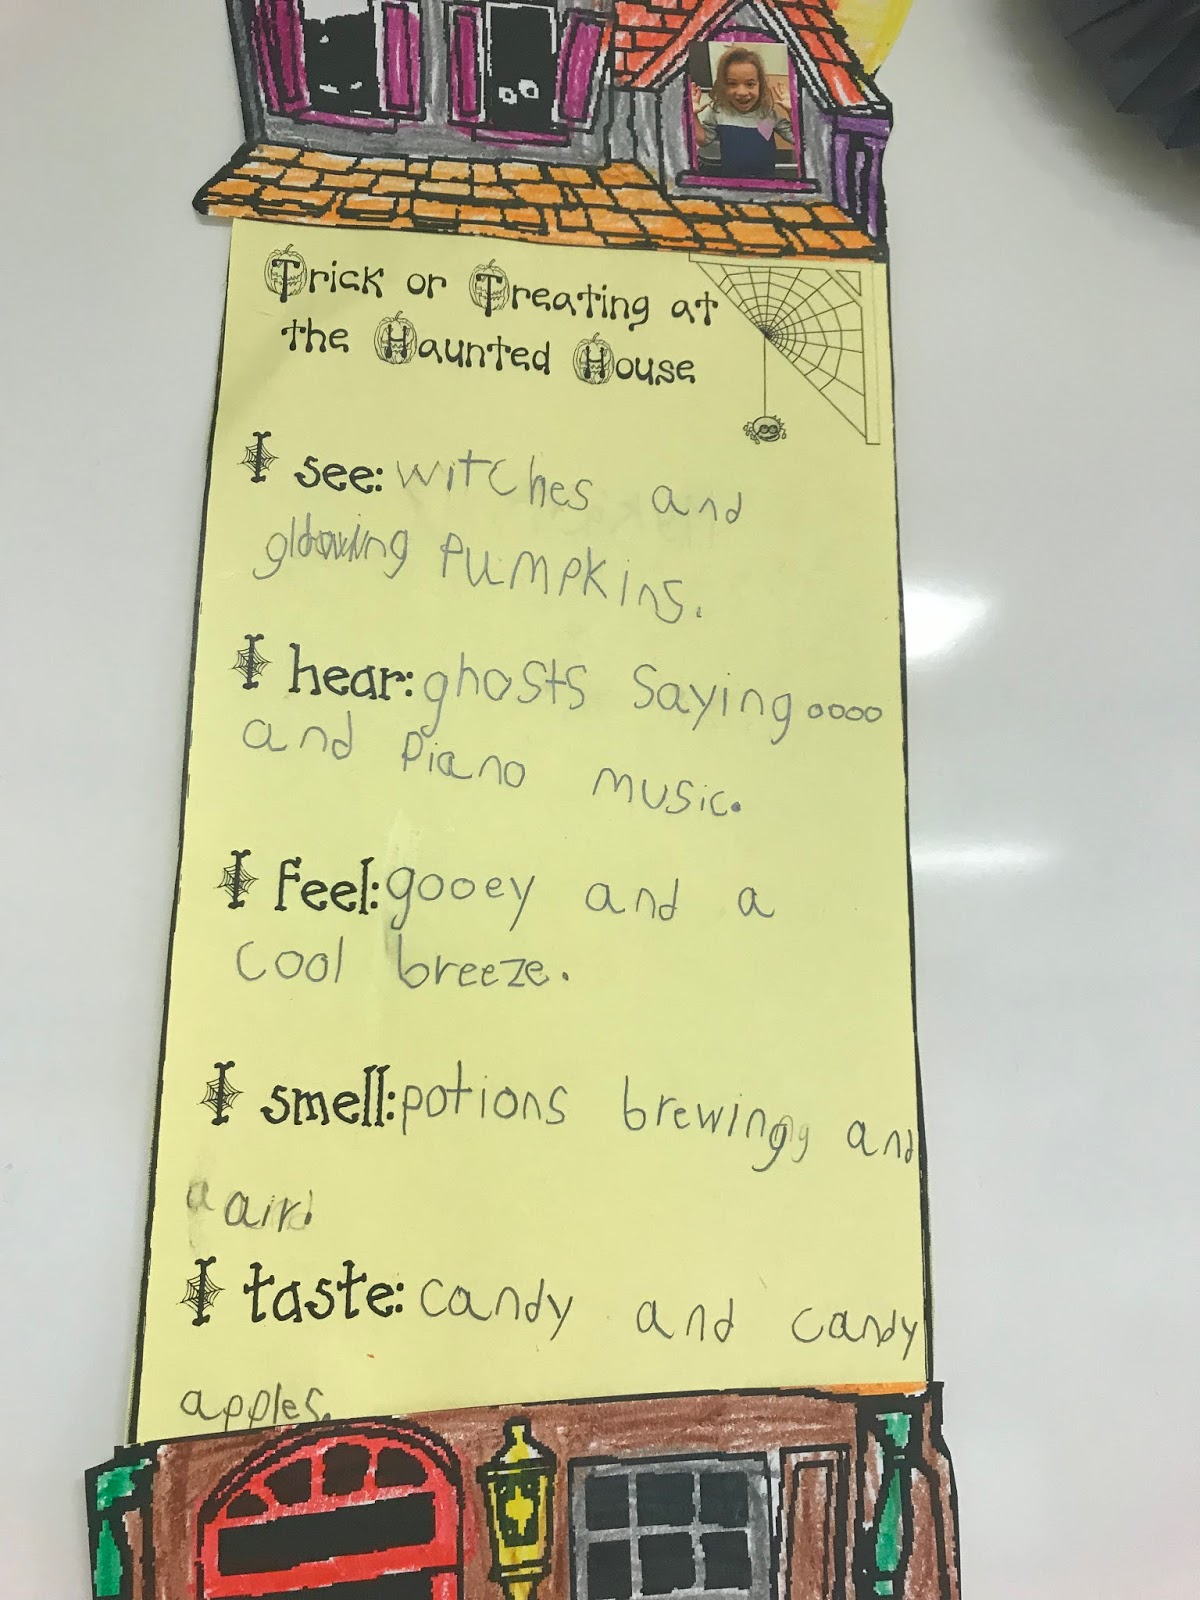 Trick or Treating at
the Haunted House
I see: witches and
glowing pumpkins.
I hear: ghosts saying oooo
and piano music.
I feel: gooey and a
cool breeze.
I smell: potions brewing and
air.
I taste: candy and candy
apples.